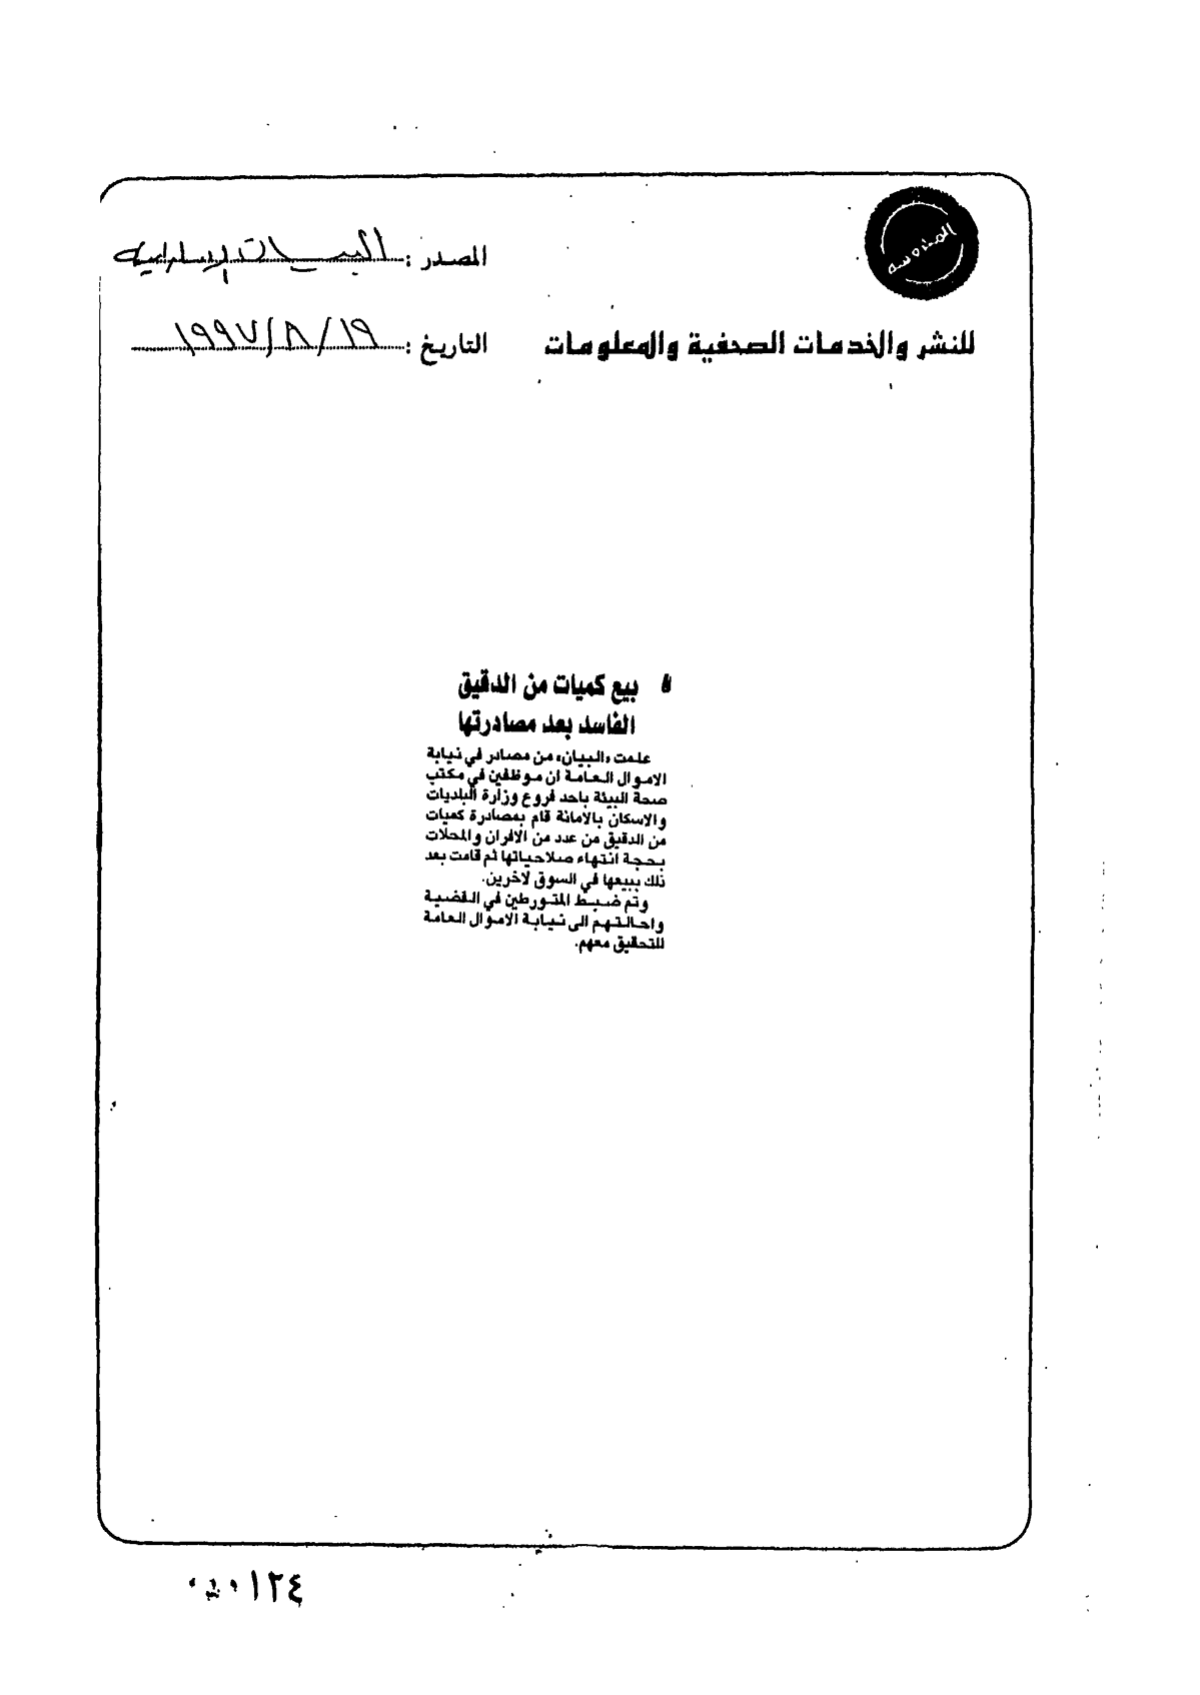 المصدر : البيان الإماراتية
للنشر والخدمات الصحفية والمعلومات
التاريخ : ١٩ / ٨ / ١٩٩٧
بيع كميات من الدقيق
الفاسد بعد مصادرتها
علمت «البيان» من مصادر في نيابة
الاموال العامة ان موظفين في مكتب
صحة البيئة باحد فروع وزارة البلديات
والاسكان بالامانة قام بمصادرة كميات
من الدقيق من عدد من الافران والمحلات
بحجة انتهاء صلاحياتها ثم قامت بعد
ذلك ببيعها في السوق لاخرين.
وتم ضبط المتورطين في القضية
واحالتهم الى نيابة الاموال العامة
للتحقيق معهم.
١٢٤